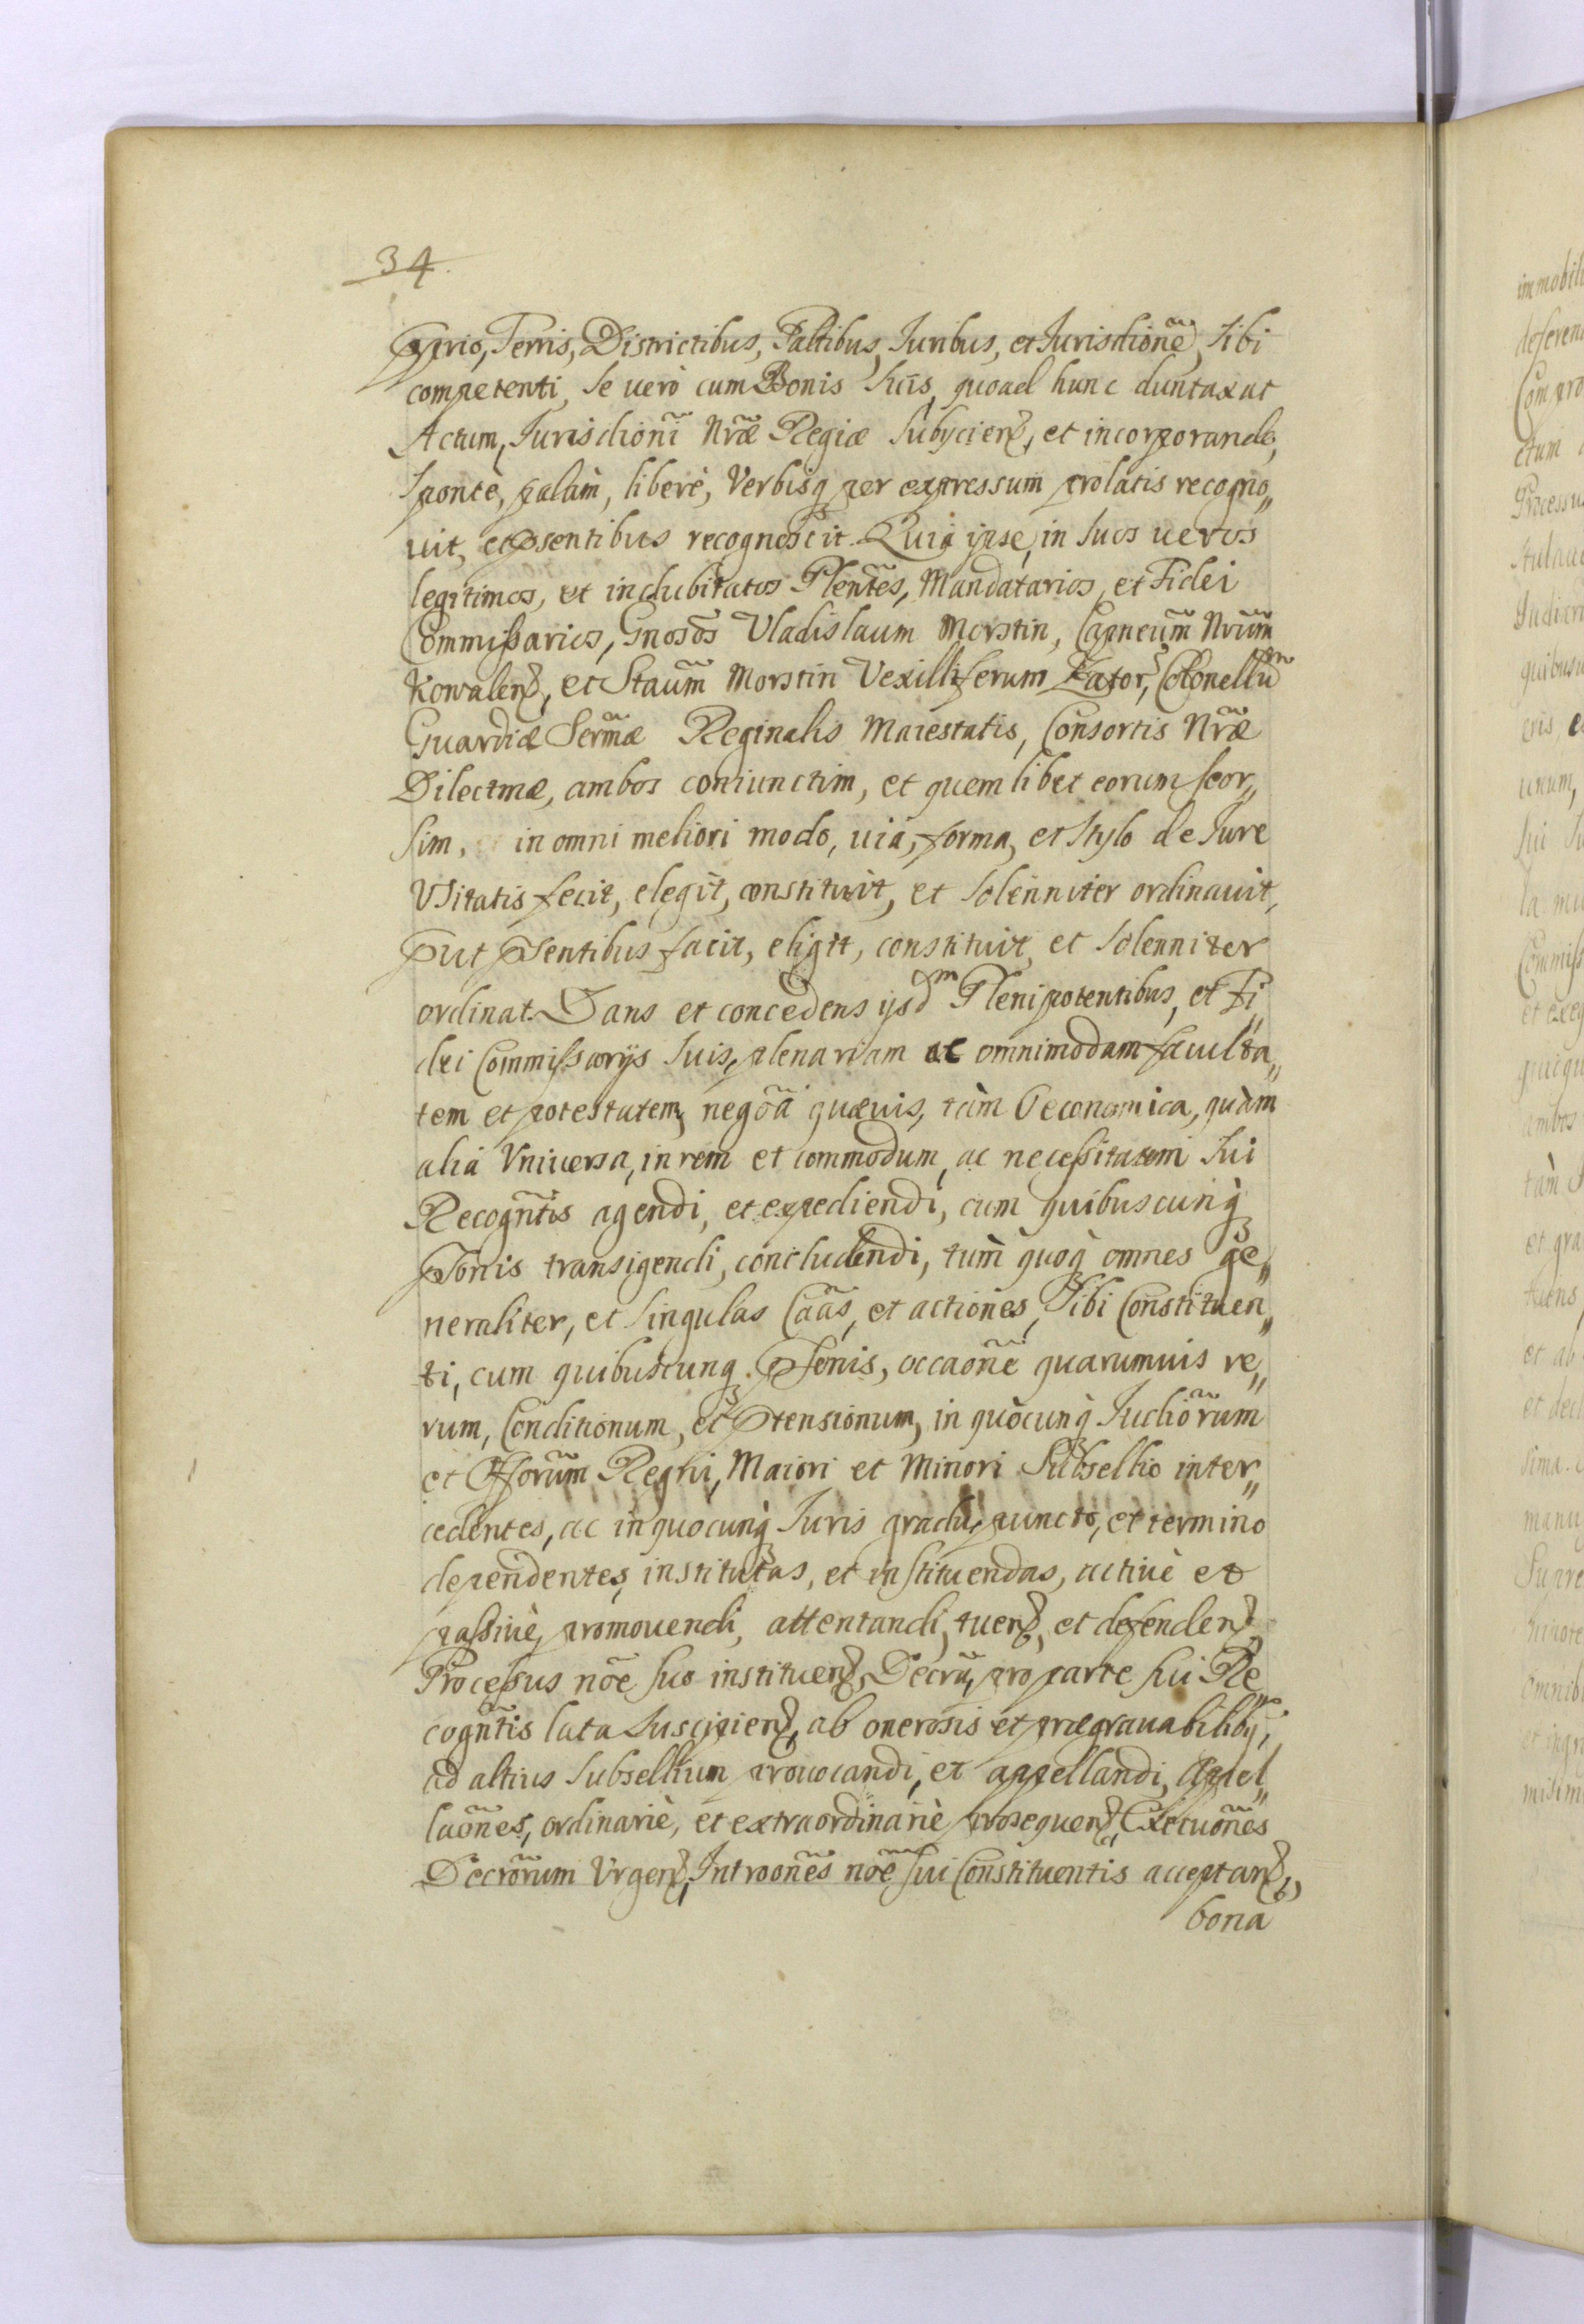 34.
Pprio, Terris, Districtibus, Paltibus, Juribus, et Jurisdione, Sibi
competenti, Se uero cum Bonis Suis, quoad hunc duntaxat
Actum, Jurisdioni Nræ Regiæ Subycien, et incorporando,
Sponte, palam, libere, Verbisq per expressum prolatis recogno„
uit, et Psentibus recognoscit. Quia ipse, in Suos ueros
legitimos, et indubitatos Plentes, Mandatarios, et Fidei
Commissarios, Gnosos Vladislaum Morstin, Capneum Nrum
Kowalen, et Staum Morstin Vexilliferum Zator, Colonellum
Guardiæ Sermæ Reginalis Maiestatis, Consortis Nræ
Dilectmæ, ambos coniunctim, et quemlibet eorum seor„
sim, in omni meliori modo, uiâ, forma, et Stylo de Jure
Vsitatis fecit, elegit, constituit, et Solenniter ordinauit,
Put Psentibus facit, eligit, constituit, et Solenniter
ordinat. Dans et concedens ijsdm Plenipotentibus, et Fi„
dei Commissarijs Suis, plenariam ac omnimodam faculta„
tem et potestatem, negoa quæuis, tàm Oeconomica, quàm
alia Vniuersa, in rem et commodum, ac necessitatem Sui
Recogntis agendi, et expediendi, cum quibuscunq
Psonis transigendi, concludendi, tum quoq omnes ge„
neraliter, et Singulas Caas, et actiones, Sibi Constituen„
ti, cum quibuscunq Psonis, occaone quarumuis re„
rum, Conditionum, et Ptensionum, in quòcunq Judiorum
et Offorum Regni, Maiori et Minori Subsellio inter„
cedentes, ac in quocunq Juris gradu, puncto, et termino
dependentes, institutas, et instituendas, actiuè et
passiuè, promouendi, attentandi, tuen, et defenden,
Processus noe suo instituen, Decra, pro parte Sui Re„
cogntis lata Suscipien, ab onerosis et prægrauabilibq,
ad altius Subsellium prouocandi, et appellandi, Appel„
laones, ordinariè, et extraordinariè prosequen, Exetuones
Decrorum Vrgen, Introones noe Sui Constituentis acceptan,
bona